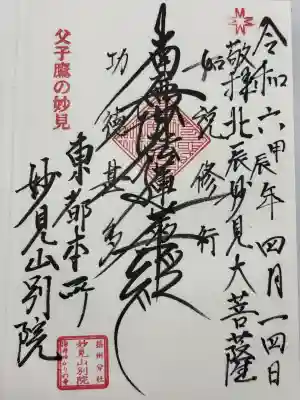 令和六甲辰年四月一四日
敬拝北辰妙見大菩薩
如説修行
南無妙法蓮華経
功徳甚多
父子鷹の妙見
東都本所
妙見山別院
妙見山別院